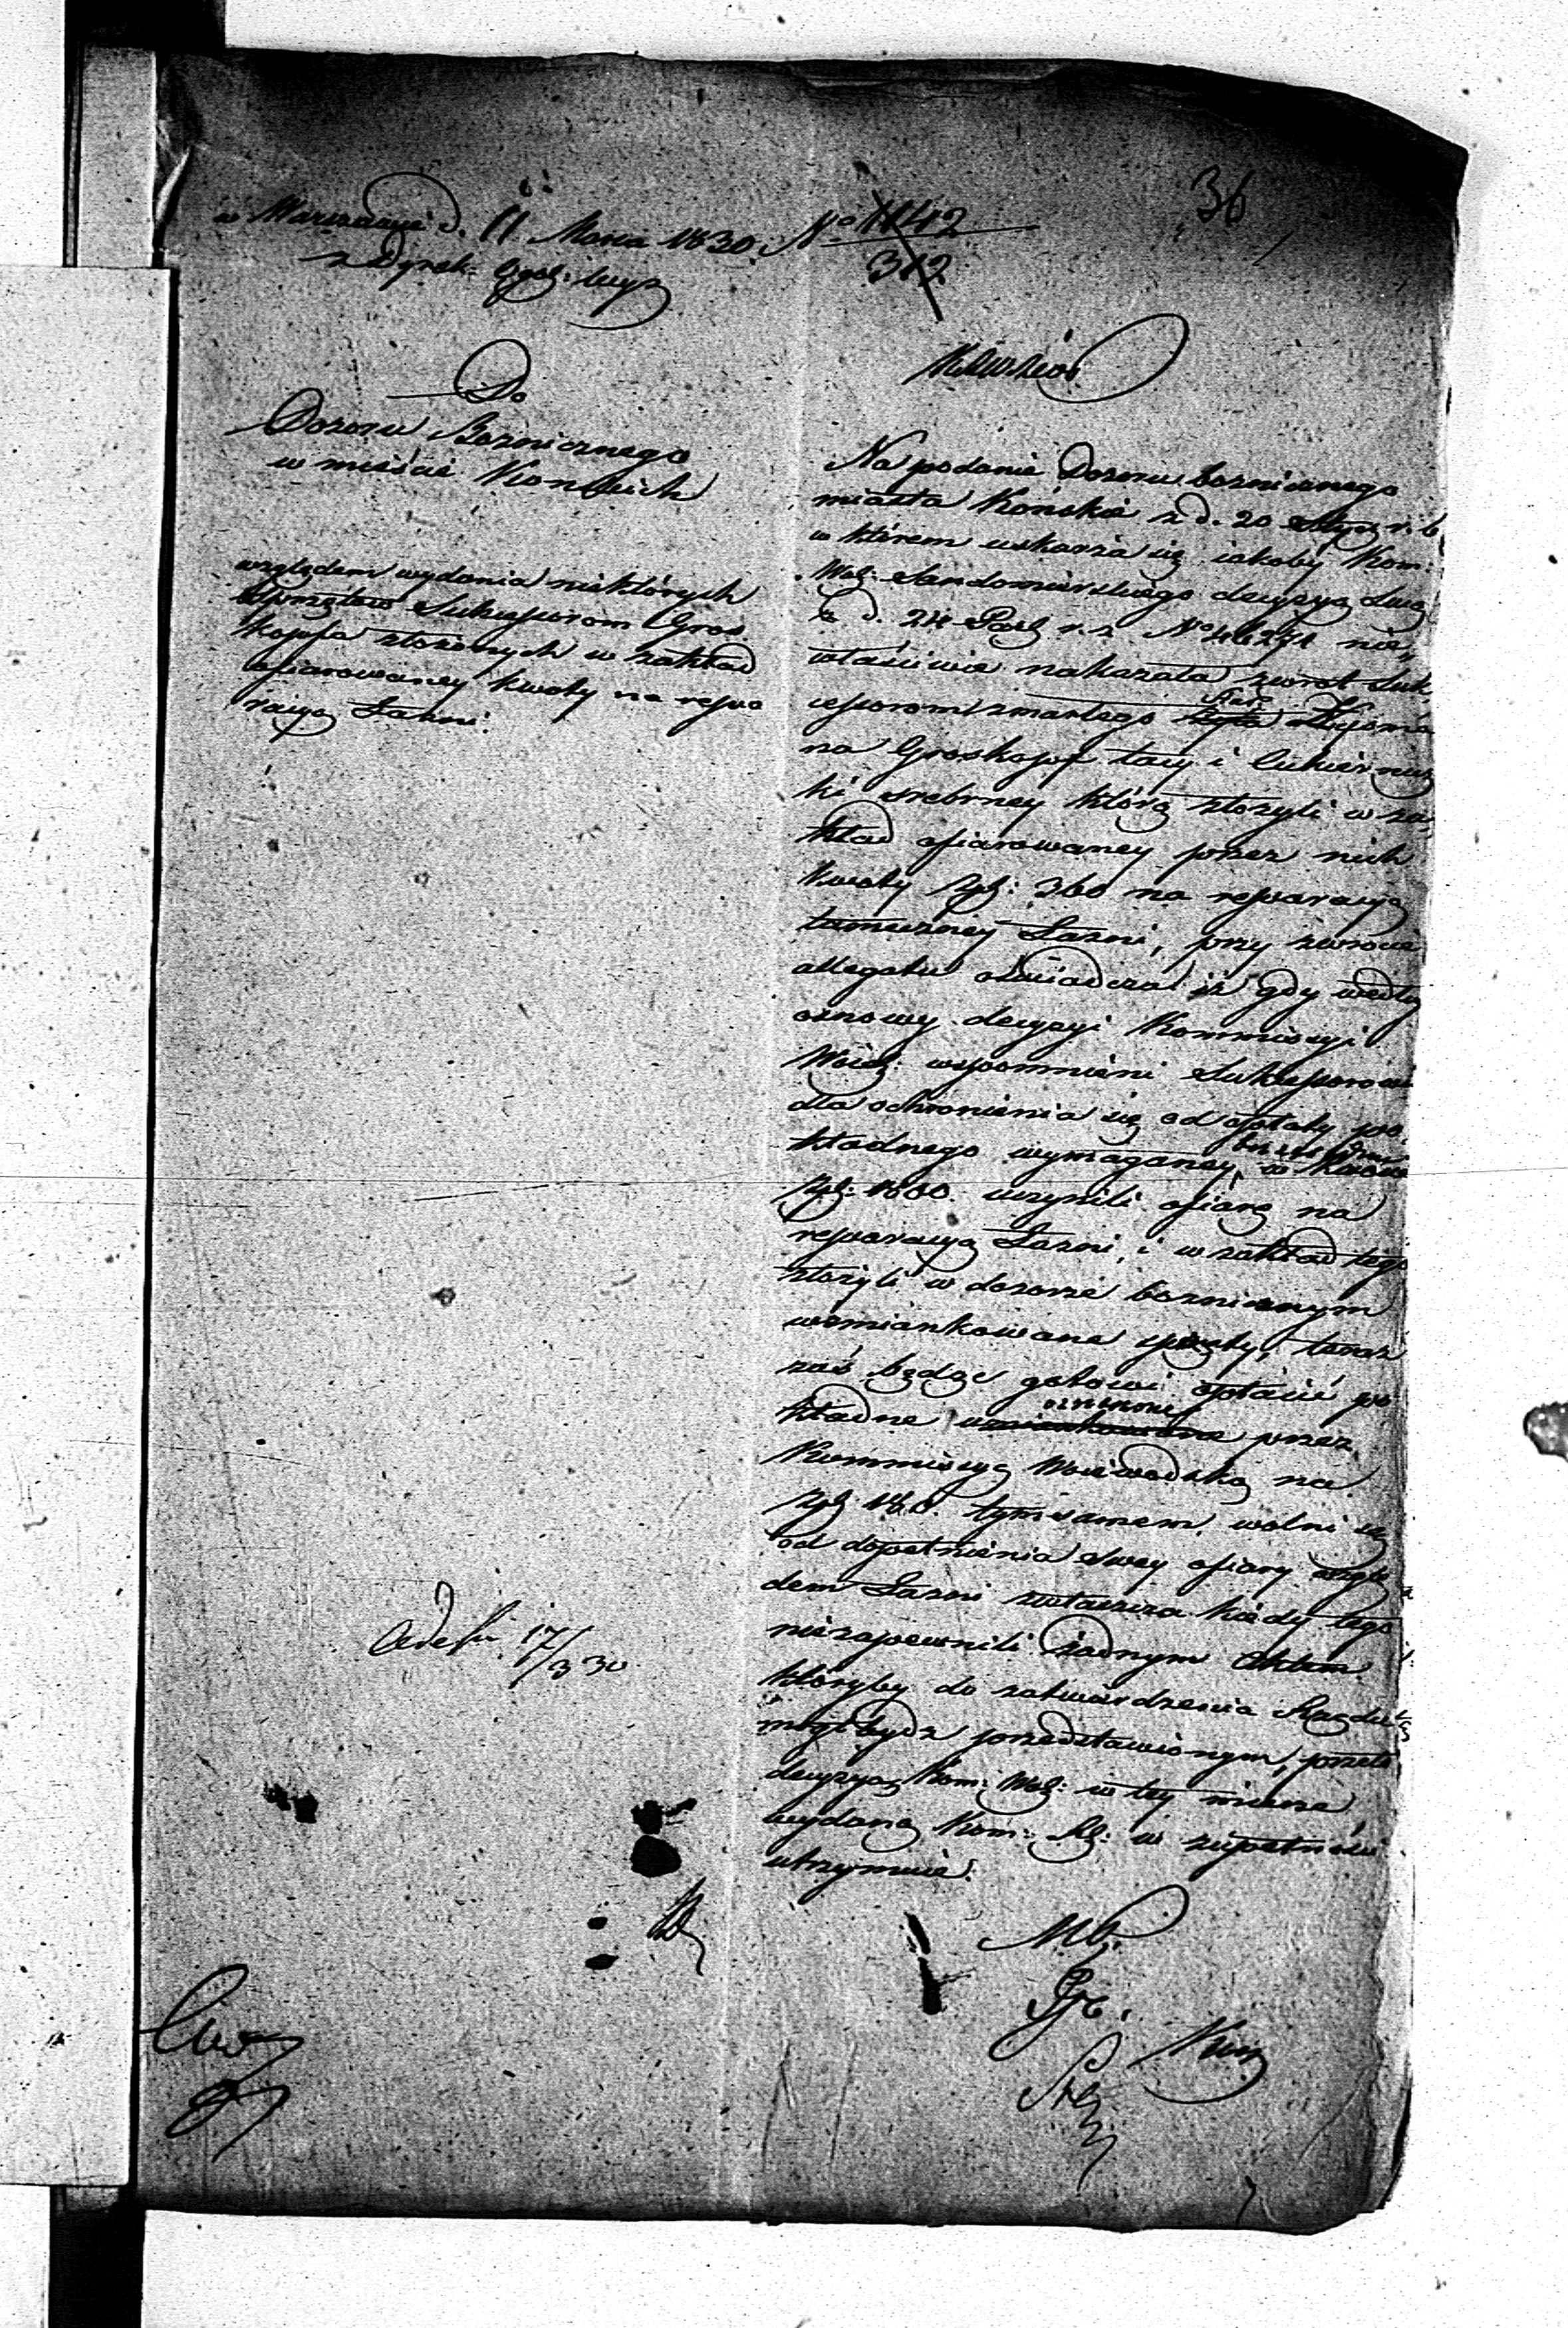 36
w Warszawie d. 11 Marca 1830. No 11412
312
z Dyrek. Ogól: Wyz
Do
Dozoru Boznicznego
w mieście Konskich
względem wydania niektórych
sprzętów Sukcessorom Gros
kopfa złożonych w zakład
ofiarowaney kwoty na repa
racyą Łazni.
Na podanie Dozoru bozniczego
miasta Końskie z d. 20 Stycz r. b
w którem uskarza się iakoby Kom:
Woj: Sandomierskiego decyzyą swą
z d. 24 Paź r. z. No nie„
właściwie nakazała zwrot Suk„
cessorom zmarłego Szysma
na Groskopf tacy i cukiernicz
ki srebrney którą złozyli w za„
kład ofiarowaney przez nich
kwoty Zpł: 360 na reparacyą
tameczney Łazni, przy zwrocie
allegatu oświadcza iż gdy według
osnowy decyzyi Kommissyi
Woiew: wspomnieni Sukcessorowie
dla ochronienia się od opłaty po
kładnego wymaganey w kwocie
Zpł: 1800. uczynili ofiarę na
reparacyą Łazni, i w zakład tego
złożyli w dozorze bozniczym
wzmiankowane sprzęty, teraz
zaś będąc gotowi opłacić po
kładne oznaczone przez
Kommissyą Woiewodzką na
Zpł 180. tym samem wolni są
od dopełnienia swey ofiary wzglę
dem Łazni zwłaszcza kiedy tego
niezapewnili żadnym Aktem
któryby do zatwierdzenia Rządu
mógł bydz przedstawionym, przeto
decyzyą Kom: Woj: w tey mierze
wydaną Kom: Rz: w zupełności
utrzymuie.
17/3 30